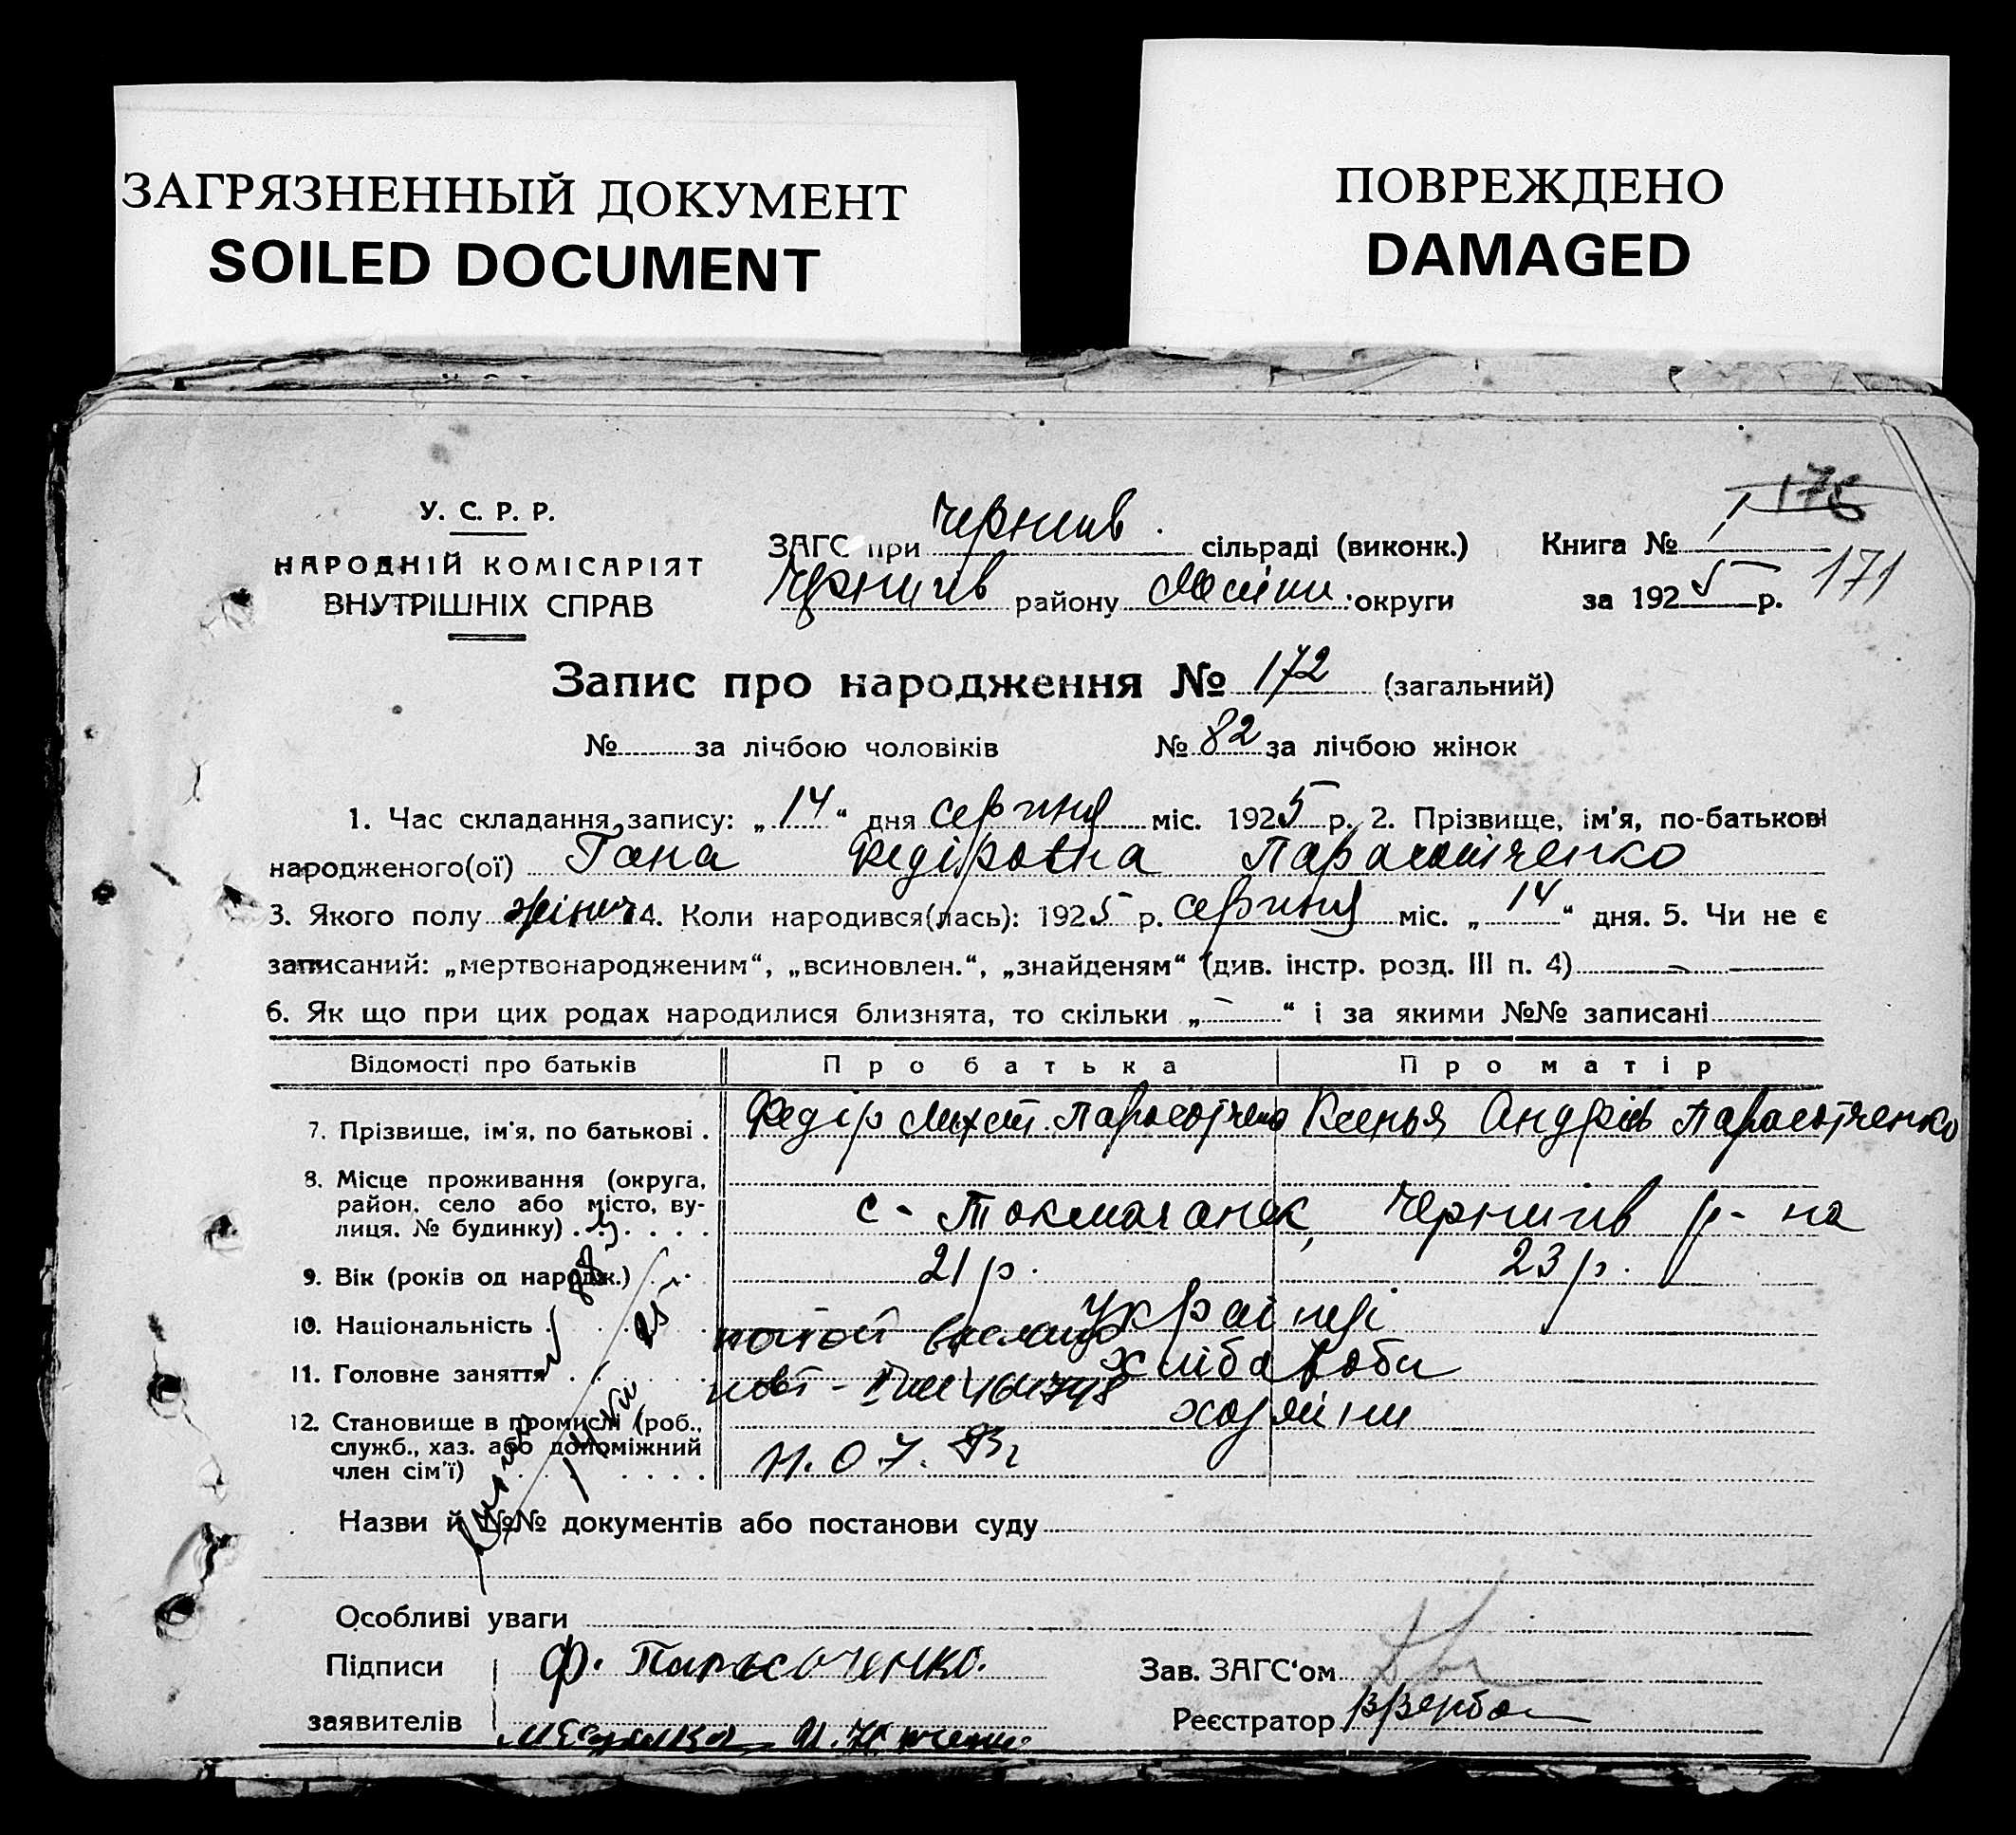 ЗАГРЯЗНЕННЫЙ ДОКУМЕНТ
SOILED DOCUMENT
ПОВРЕЖДЕНО
DAMAGED
176
У. С. Р. Р.
НАРОДНІЙ КОМІСАРІЯТ
ВНУТРІШНІХ СПРАВ
ЗАГС при Черниив. сільраді (виконк.)
Чернигів району округи
Книга № 1
за 1925 р. 171
Запис про народження № 172 (загальний)
№ за лічбою чоловіків № 82 за лічбою жінок
1. Час складання запису: „14“ дня серпня міс. 1925 р. 2. Прізвище, ім'я, по-батькові
народженого(ої) Гана Федіровна
3. Якого полу жіноч 4. Коли народився(лась): 1925 р. серпня міс. „14“ дня. 5. Чи не є
записаний: „мертвонародженим“, „всиновлен.“, „знайденям“ (див. інстр. розд. III п. 4) -
6. Як що при цих родах народилися близнята, то скільки „-“ і за якими №№ записані
Відомості про батьків Про батька Про матір
7. Прізвище, ім'я, по батькові . Федір Ксенья Андріев
8. Місце проживання (округа,
район, село або місто, ву-
лиця. № будинку) . . . . . с - Токмачанск, Чернигів р-на
9. Вік (років од народж.) . . 21 р. 23 р.
10. Національність . . . . . Українці
11. Головне заняття . . . . . хліба роби
12. Становище в промислі (роб.,
служб., хаз. або допоміжний
член сім'ї) . . . . . хозяіни
11.07.93г
Назви й №№ документів або постанови суду
Особливі уваги
Підписи Ф.
заявителів
Зав. ЗАГС‘ом
Реєстратор